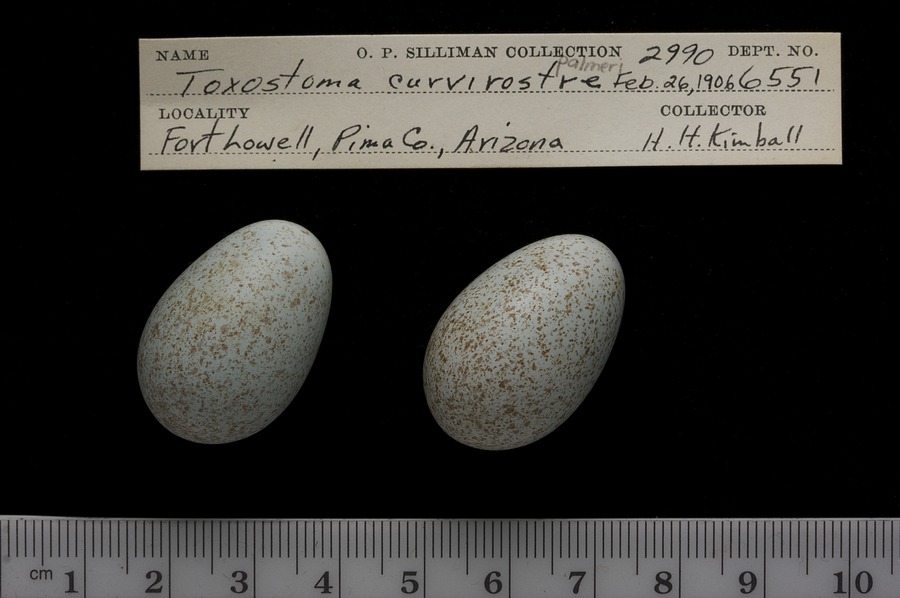 NAME O. P. SILLIMAN COLLECTION 2990 DEPT. NO.
palmeri
Toxostoma curvirostre Feb. 26, 1906 6551
LOCALITY COLLECTOR
Fort Lowell, Pima Co., Arizona H. H. Kimball
cm 1 2 3 4 5 6 7 8 9 10